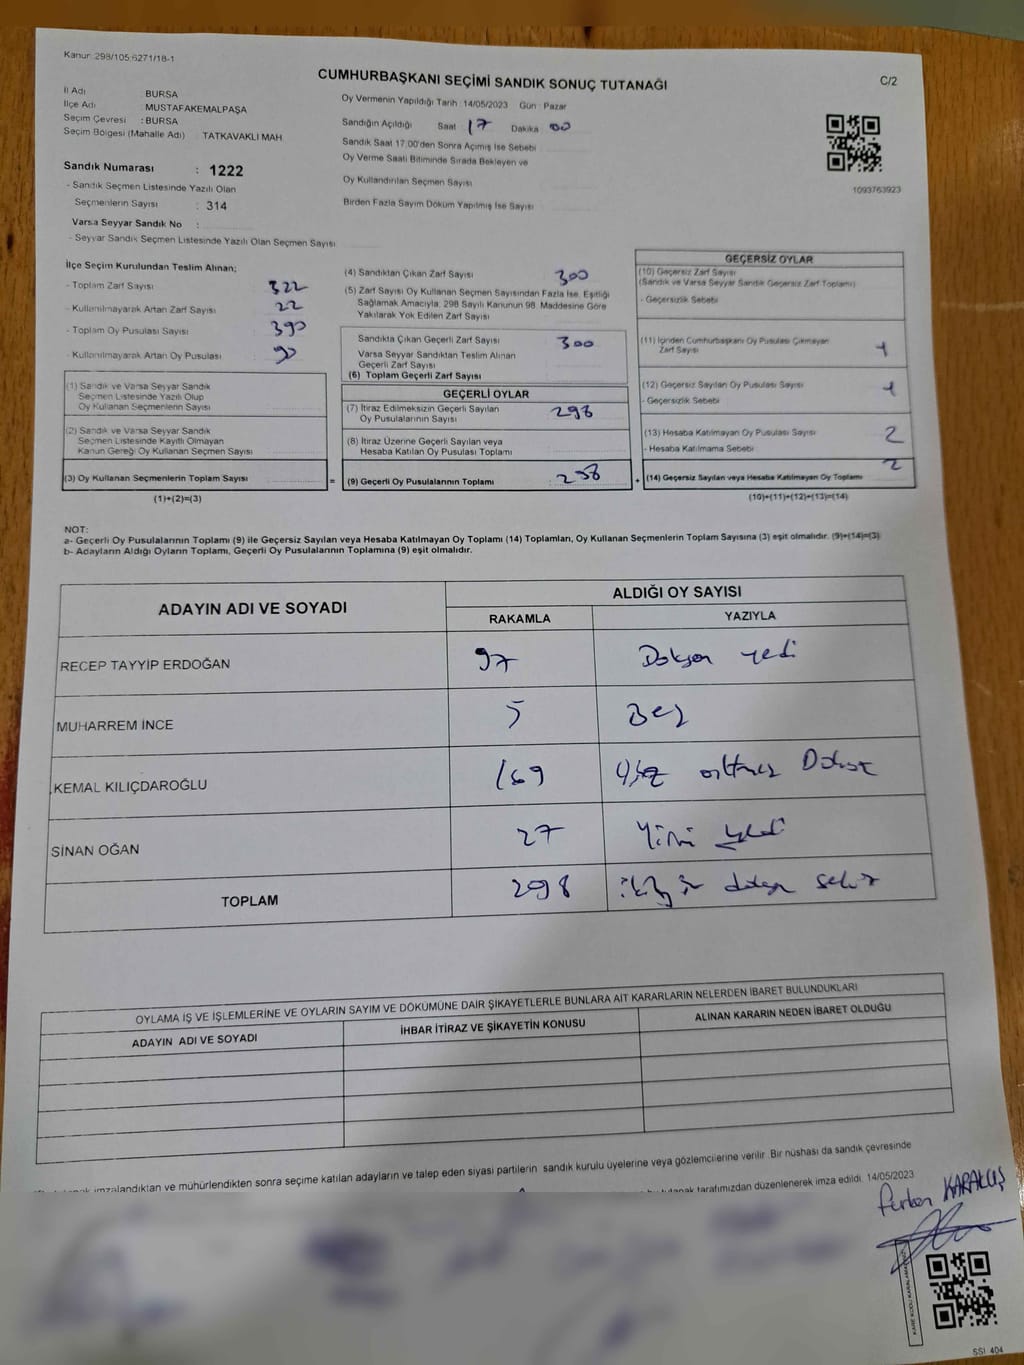 Kanun: 298/105:6271/18-1
CUMHURBAŞKANI SEÇİMİ SANDIK SONUÇ TUTANAĞI
C/2
İl Adı BURSA
İlçe Adı MUSTAFAKEMALPAŞA
Seçim Çevresi : BURSA
Seçim Bölgesi (Mahalle Adı) : TATKAVAKLI MAH
Oy Vermenin Yapıldığı Tarih : 14/05/2023 Gün : Pazar
Sandığın Açıldığı Saat 17 Dakika 00
Sandık Saat 17:00'den Sonra Açımış İse Sebebi
Oy Verme Saati Bitiminde Sırada Bekleyen ve
Oy Kullandırılan Seçmen Sayısı
Birden Fazla Sayım Döküm Yapılmış İse Sayısı
1093763923
Sandık Numarası : 1222
- Sandık Seçmen Listesinde Yazılı Olan
Seçmenlerin Sayısı : 314
Varsa Seyyar Sandık No :
- Seyyar Sandık Seçmen Listesinde Yazılı Olan Seçmen Sayısı
İlçe Seçim Kurulundan Teslim Alınan;
- Toplam Zarf Sayısı 322
- Kullanılmayarak Artan Zarf Sayısı 22
- Toplam Oy Pusulası Sayısı 390
- Kullanılmayarak Artan Oy Pusulası 90
(1) Sandık ve Varsa Seyyar Sandık
Seçmen Listesinde Yazılı Olup
Oy Kullanan Seçmenlerin Sayısı
(2) Sandık ve Varsa Seyyar Sandık
Seçmen Listesinde Kayıtlı Olmayan
Kanun Gereği Oy Kullanan Seçmen Sayısı
(3) Oy Kullanan Seçmenlerin Toplam Sayısı =
(1)+(2)=(3)
(4) Sandıktan Çıkan Zarf Sayısı 300
(5) Zarf Sayısı Oy Kullanan Seçmen Sayısından Fazla İse, Eşitliği
Sağlamak Amacıyla, 298 Sayılı Kanunun 98. Maddesine Göre
Yakılarak Yok Edilen Zarf Sayısı
Sandıkta Çıkan Geçerli Zarf Sayısı 300
Varsa Seyyar Sandıktan Teslim Alınan
Geçerli Zarf Sayısı
(6) Toplam Geçerli Zarf Sayısı
GEÇERLİ OYLAR
(7) İtiraz Edilmeksizin Geçerli Sayılan
Oy Pusulalarının Sayısı 298
(8) İtiraz Üzerine Geçerli Sayılan veya
Hesaba Katılan Oy Pusulası Toplamı
(9) Geçerli Oy Pusulalarının Toplamı 298 +
GEÇERSİZ OYLAR
(10) Geçersiz Zarf Sayısı
(Sandık ve Varsa Seyyar Sandık Geçersiz Zarf Toplamı)
- Geçersizlik Sebebi
(11) İçinden Cumhurbaşkanı Oy Pusulası Çıkmayan
Zarf Sayısı 1
(12) Geçersiz Sayılan Oy Pusulası Sayısı 1
- Geçersizlik Sebebi
(13) Hesaba Katılmayan Oy Pusulası Sayısı 2
- Hesaba Katılmama Sebebi
(14) Geçersiz Sayılan veya Hesaba Katılmayan Oy Toplamı 2
(10)+(11)+(12)+(13)=(14)
NOT:
a- Geçerli Oy Pusulalarının Toplamı (9) ile Geçersiz Sayılan veya Hesaba Katılmayan Oy Toplamı (14) Toplamları, Oy Kullanan Seçmenlerin Toplam Sayısına (3) eşit olmalıdır. (9)+(14)=(3)
b- Adayların Aldığı Oyların Toplamı, Geçerli Oy Pusulalarının Toplamına (9) eşit olmalıdır.
ADAYIN ADI VE SOYADI
ALDIĞI OY SAYISI
RAKAMLA YAZIYLA
RECEP TAYYİP ERDOĞAN 97 Doksan yedi
MUHARREM İNCE 5 Beş
KEMAL KILIÇDAROĞLU 169 Yüz altmış Dokuz
SİNAN OĞAN 27 Yirmi yedi
TOPLAM 298 iki yüz doksan sekiz
OYLAMA İŞ VE İŞLEMLERİNE VE OYLARIN SAYIM VE DÖKÜMÜNE DAİR ŞİKAYETLERLE BUNLARA AİT KARARLARIN NELERDEN İBARET BULUNDUKLARI
ADAYIN ADI VE SOYADI İHBAR İTİRAZ VE ŞİKAYETİN KONUSU ALINAN KARARIN NEDEN İBARET OLDUĞU
imzalandıktan ve mühürlendikten sonra seçime katılan adayların ve talep eden siyasi partilerin sandık kurulu üyelerine veya gözlemcilerine verilir. Bir nüshası da sandık çevresinde
tutanak tarafımızdan düzenlenerek imza edildi. 14/05/2023
Furkan KARAKUŞ
SSI 404